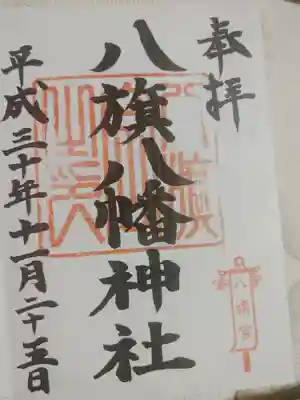 奉拝
八旗八幡神社
平成三十年十一月二十五日
八幡宮